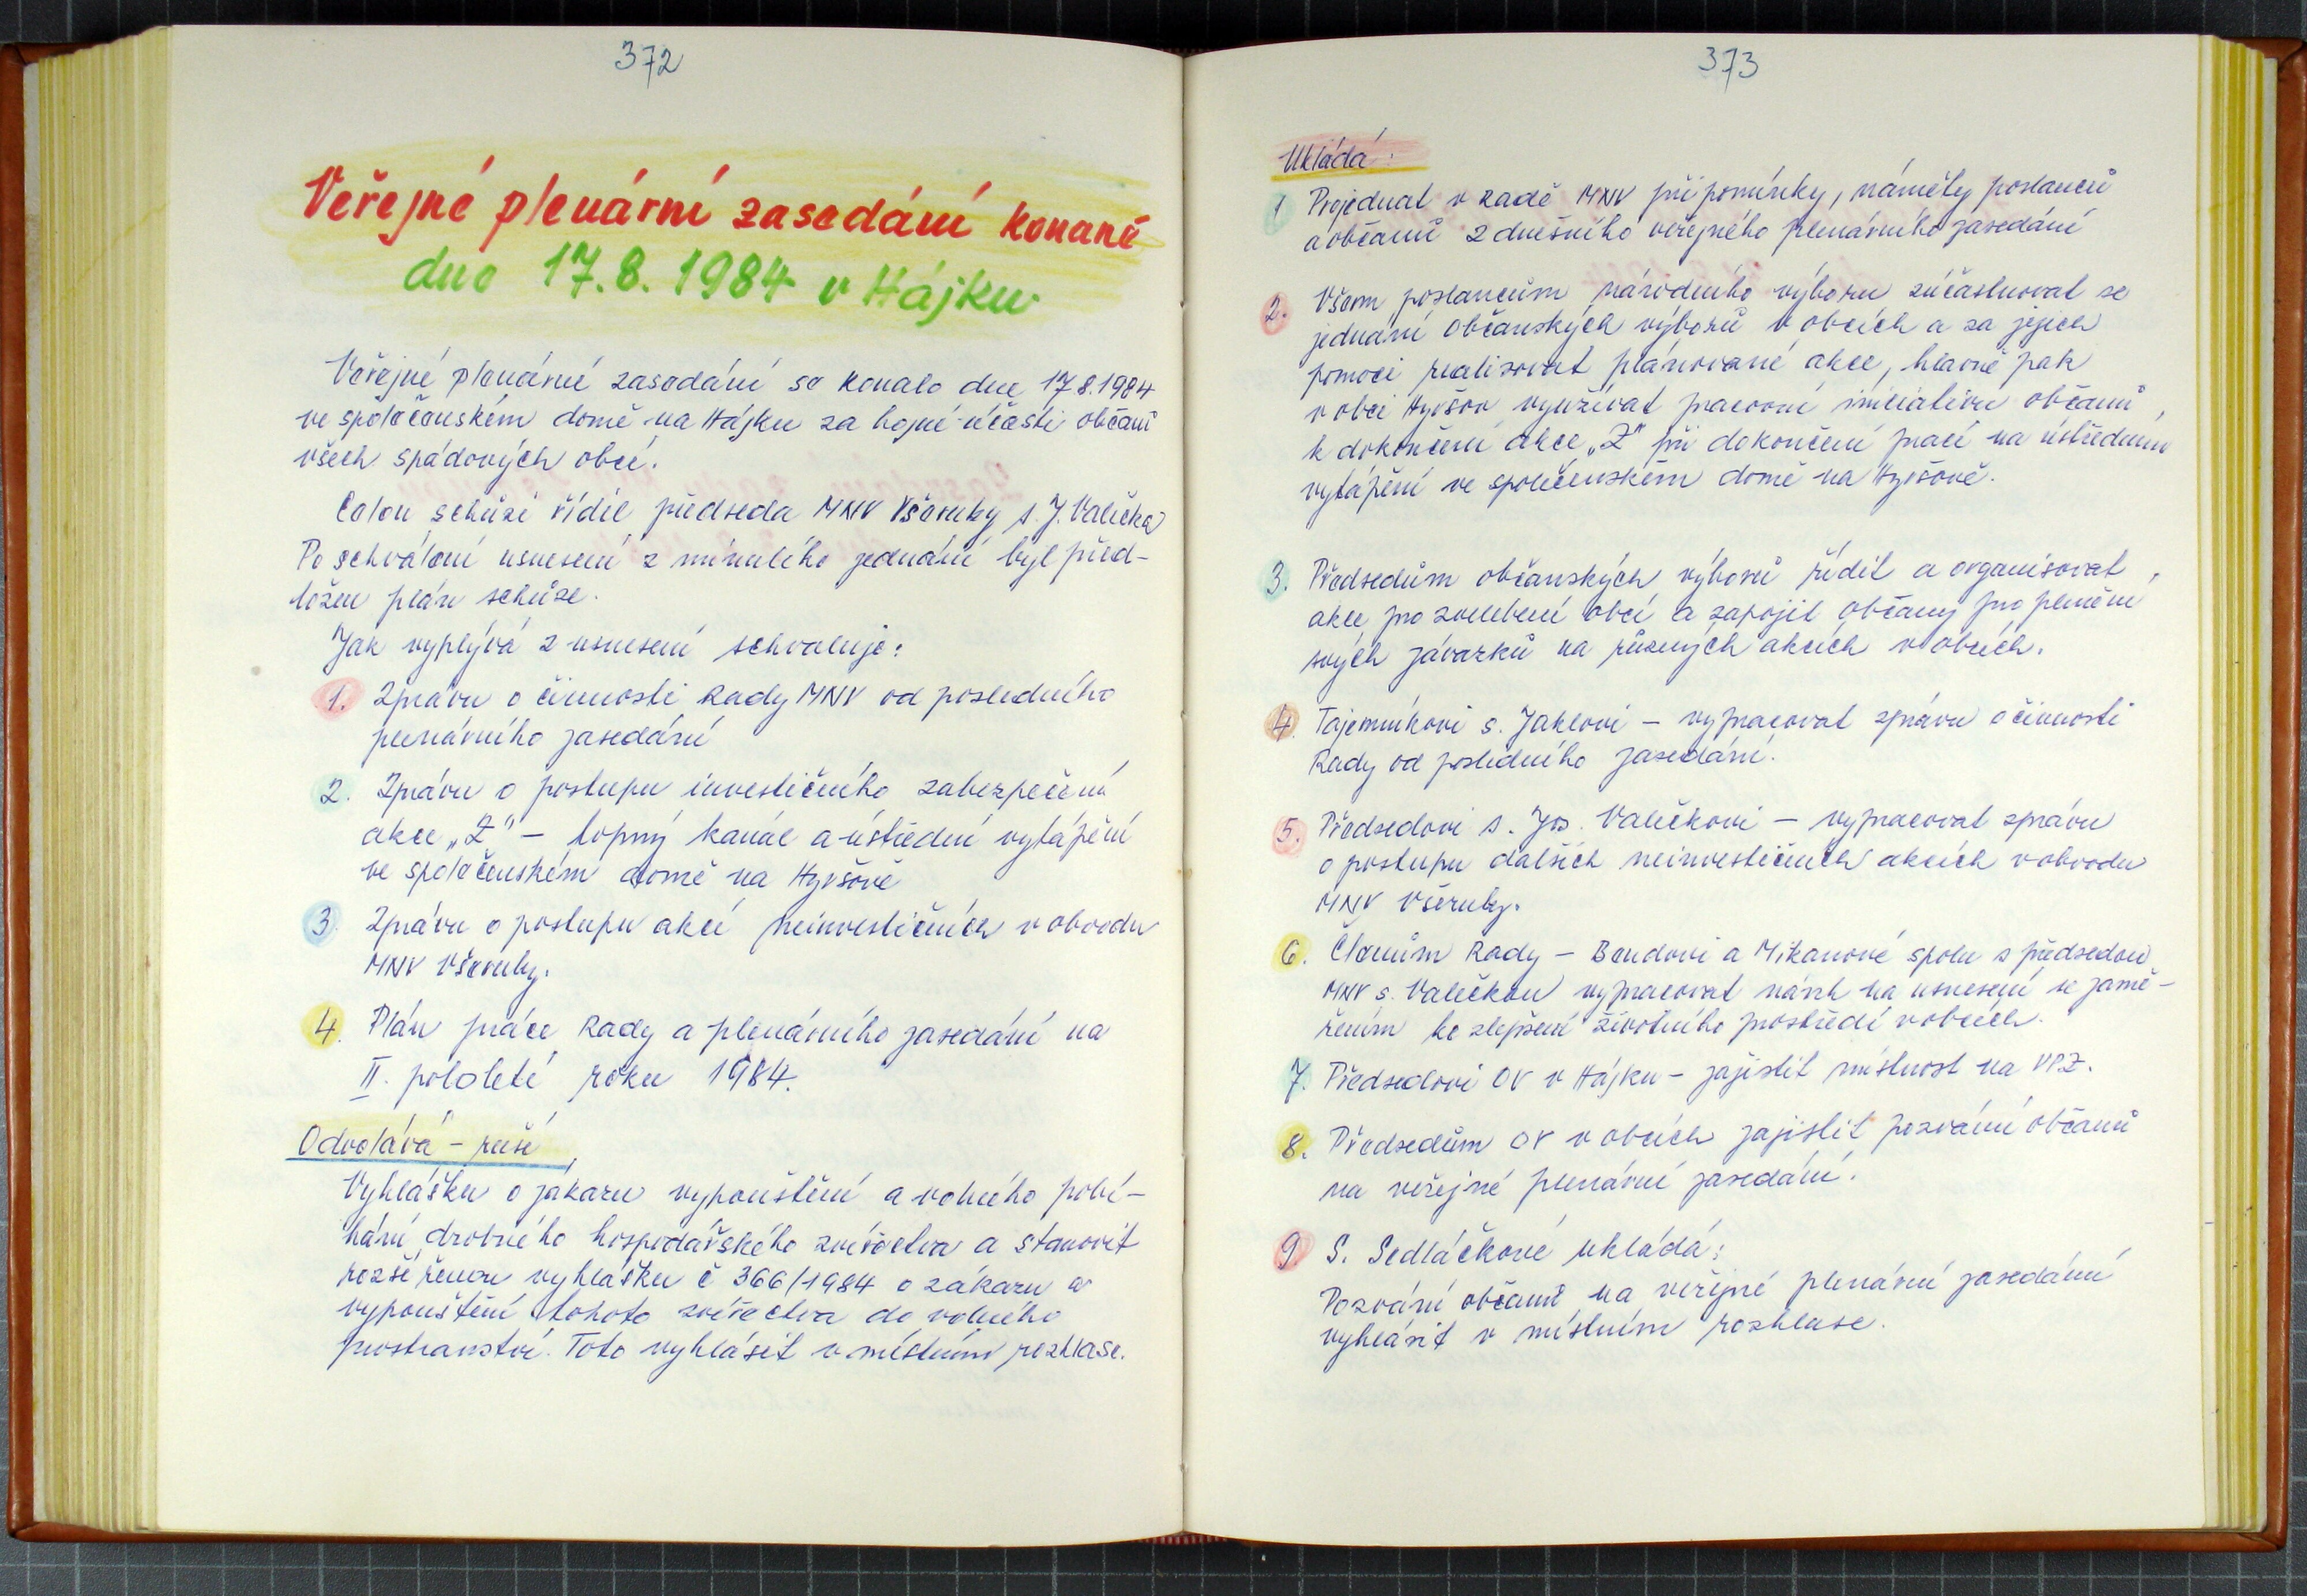 372
Veřejné plenární zasedání konané
dne 17.8.1984 v Hájku
Veřejné plenární zasedání se konalo dne 17.8.1984
ve společenském domě na Hájku za hojné účasti občanů
všech spádových obcí.
Celou schůzi řídil předseda MNV Všeruby s. J. Valečka
Po schválení usnesení z minulého jednání byl před-
ložen plán schůze.
Jak vyplývá z usnesení schvaluje:
1. Zprávu o činnosti Rady MNV od posledního
plenárního zasedání
2. Zprávu o postupu investičního zabezpečení
akce „Z" – topný kanál a ústřední vytápění
ve společenském domě na Hyršově
3. Zprávu o postupu akcí neinvestičních v obvodu
MNV Všeruby.
4. Plán práce Rady a plenárního zasedání na
II. pololetí roku 1984.
Odvolává – ruší
Vyhlášku o zákazu vypouštění a volného pobí-
hání drobného hospodářského zvířectva a stanovit
rozšířenou vyhlášku č 366/1984 o zákazu a
vypouštění tohoto zvířectva do volného
prostranství. Toto vyhlásit v místním rozhlase.
373
Ukládá:
1 Projednat v Radě MNV připomínky, náměty poslanců
a občanů z dnešního veřejného plenárního zasedání
2. Všem poslancům národního výboru zúčastňovat se
jednání Občanských výborů v obcích a za jejich
pomoci realizovat plánované akce, hlavně pak
v obci Hyršov využívat pracovní iniciativu občanů,
k dokončení akce „Z" při dokončení prací na ústředním
vytápění ve společenském domě na Hyršově.
3. Předsedům občanských výborů řídit a organisovat
akce pro zvelebení obcí a zapojit občany pro plnění
svých závazků na různých akcích v obcích.
4. Tajemníkovi s. Jaklovi – vypracovat zprávu o činnosti
Rady od posledního zasedání.
5. Předsedovi s. Jos. Valečkovi – vypracovat zprávu
o postupu dalších neinvestičních akcích v obvodu
MNV Všeruby.
6. Členům Rady – Bendovi a Mikanové spolu s předsedou
MNV s. Valečkou vypracovat návrh na usnesení se zamě-
řením ke zlepšení životního prostředí v obcích.
7. Předsedovi OV v Hájku – zajistit místnost na VPZ.
8. Předsedům OV v obcích zajistit pozvání občanů
na veřejné plenární zasedání.
9. S. Sedláčkové ukládá:
Pozvání občanů na veřejné plenární zasedání
vyhlásit v místním rozhlase.